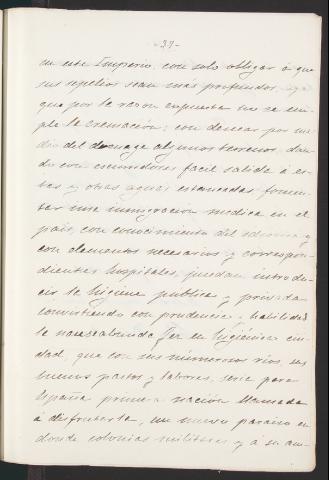 -37-
en este Imperio con solo obligar á que
sus sepelios sean más profundos ya
que por la razon expuesta no se em-
plea la cremación: con desecar por me-
dio del drenage algunos terrenos, dan-
do con escurridores facil salida á es-
tas y otras aguas estancadas fomen-
tar una inmigracion medica en el
pais, con conocimiento del idioma y
con elementos necesarios y correspon-
dientes hospitales, puedan introdu-
cir la higiene publica y privada
convirtiendo con prudencia y habilidad
la nauseabunda Fez en higiénica ciu-
dad, que con sus numerosos rios, sus
buenos pastos y labores, seria para
España primera nación llamada
á disfrutarla, un nuevo paraiso en
donde colonias militares y á su am-